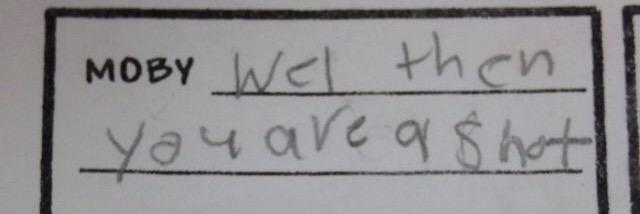 MOBY Wel then
you are a Shot